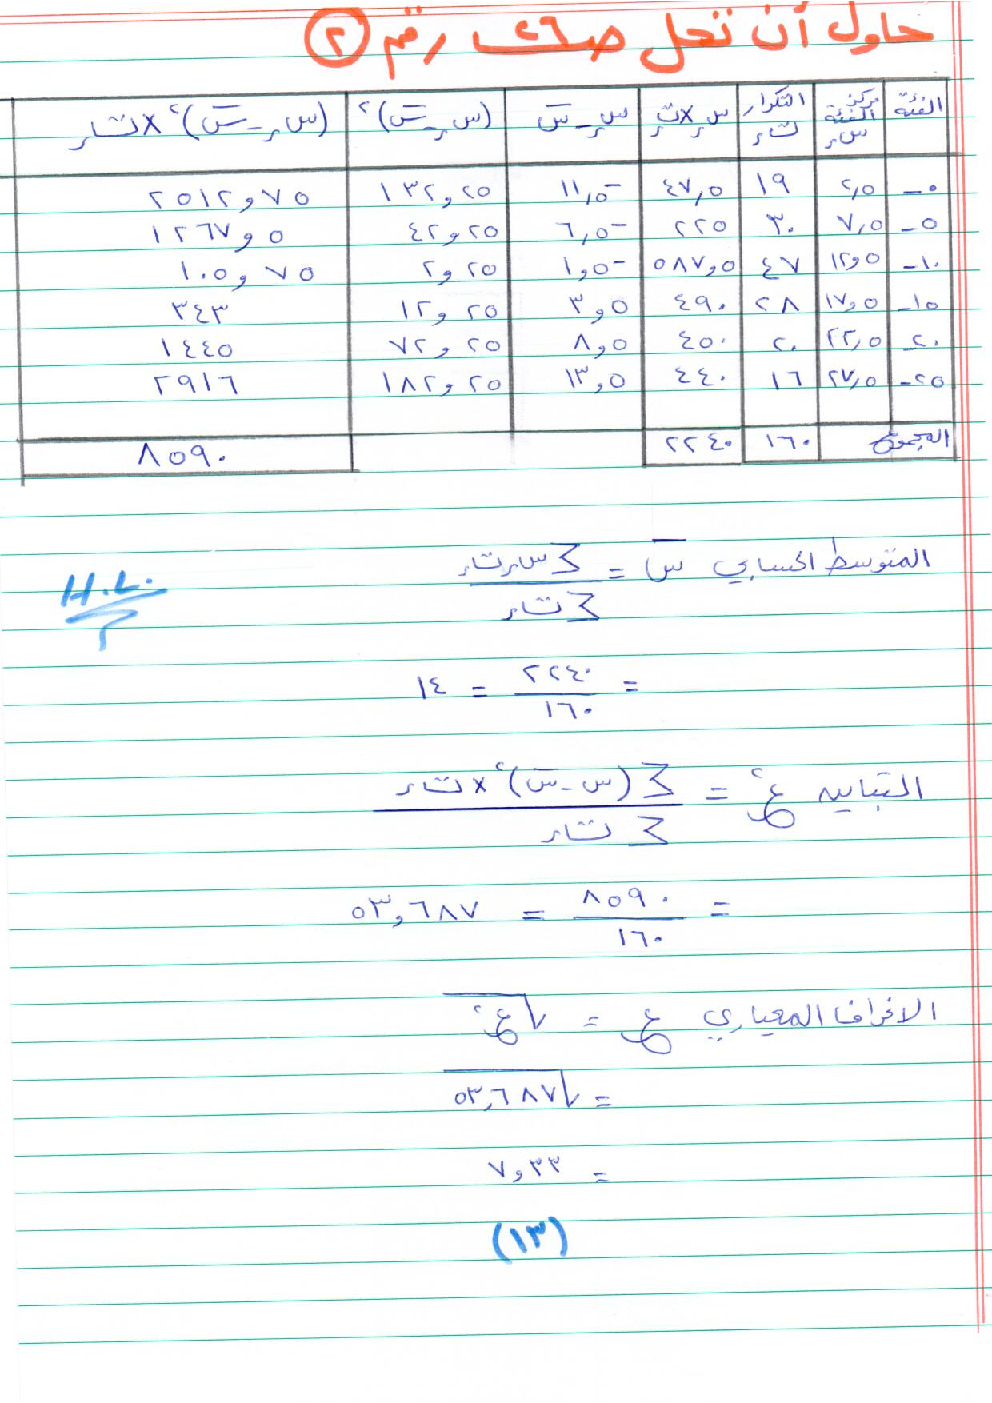 حاول أن تحل ص ٢٦ رقم (٢)
الفئة مركز الفئة سر التكرار تر سر×تر سر-س̄ (سر-س̄)٢ (سر-س̄)٢×تر
٠- ٢,٥ ١٩ ٤٧,٥ -١١,٥ ١٣٢,٢٥ ٢٥١٢,٧٥
٥- ٧,٥ ٣٠ ٢٢٥ -٦,٥ ٤٢,٢٥ ١٢٦٧,٥
١٠- ١٢,٥ ٤٧ ٥٨٧,٥ -١,٥ ٢,٢٥ ١٠٥,٧٥
١٥- ١٧,٥ ٢٨ ٤٩٠ ٣,٥ ١٢,٢٥ ٣٤٣
٢٠- ٢٢,٥ ٢٠ ٤٥٠ ٨,٥ ٧٢,٢٥ ١٤٤٥
٢٥- ٢٧,٥ ١٦ ٤٤٠ ١٣,٥ ١٨٢,٢٥ ٢٩١٦
المجموع ١٦٠ ٢٢٤٠ ٨٥٩٠
المتوسط الحسابي س̄ = ∑ سر تر / ∑ تر
H.L.
= ٢٢٤٠ / ١٦٠ = ١٤
التباين ع٢ = ∑ (س-س̄)٢ × تر / ∑ تر
= ٨٥٩٠ / ١٦٠ = ٥٣,٦٨٧
الانحراف المعياري ع = √ع٢
= √٥٣,٦٨٧
= ٧,٣٣
(١٣)